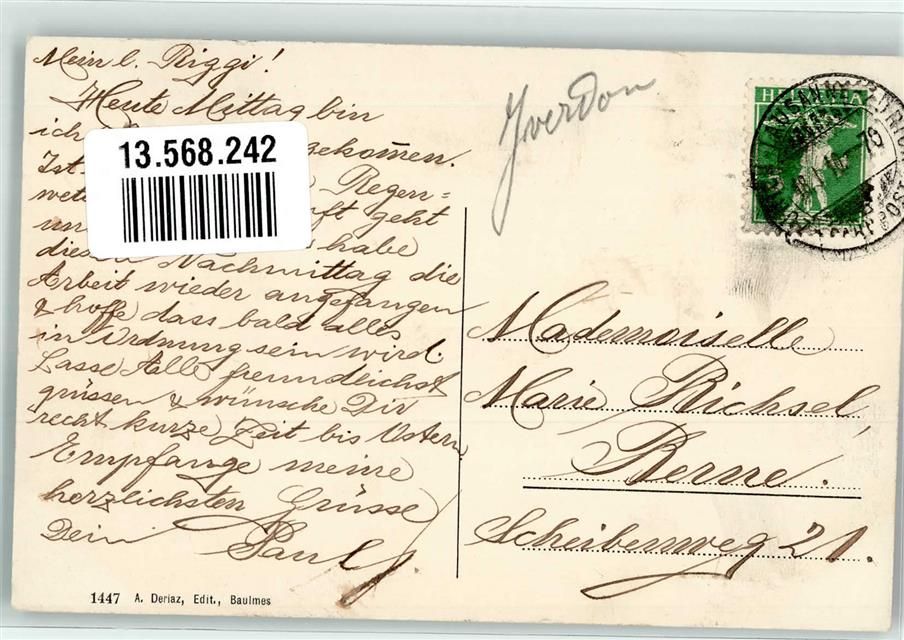 Mein l. Riggi!
Heute Mittag bin
ich gekommen.
Ist Regen=
wet
un geht
habe
diesen Nachmittag die
Arbeit wieder angefangen
& hoffe dass bald alles
in Ordnung sein wird.
Lasse Alle freundlichst
grüssen & wünsche Dir
recht kurze Zeit bis Ostern
Empfange meine
herzlichsten Grüsse
Dein Paul
13.568.242
Yverdon
HELVETIA
LAUSANNE
Mademoiselle
Marie Richsel,
Berne.
Scheibenweg 21.
1447 A. Deriaz, Edit., Baulmes